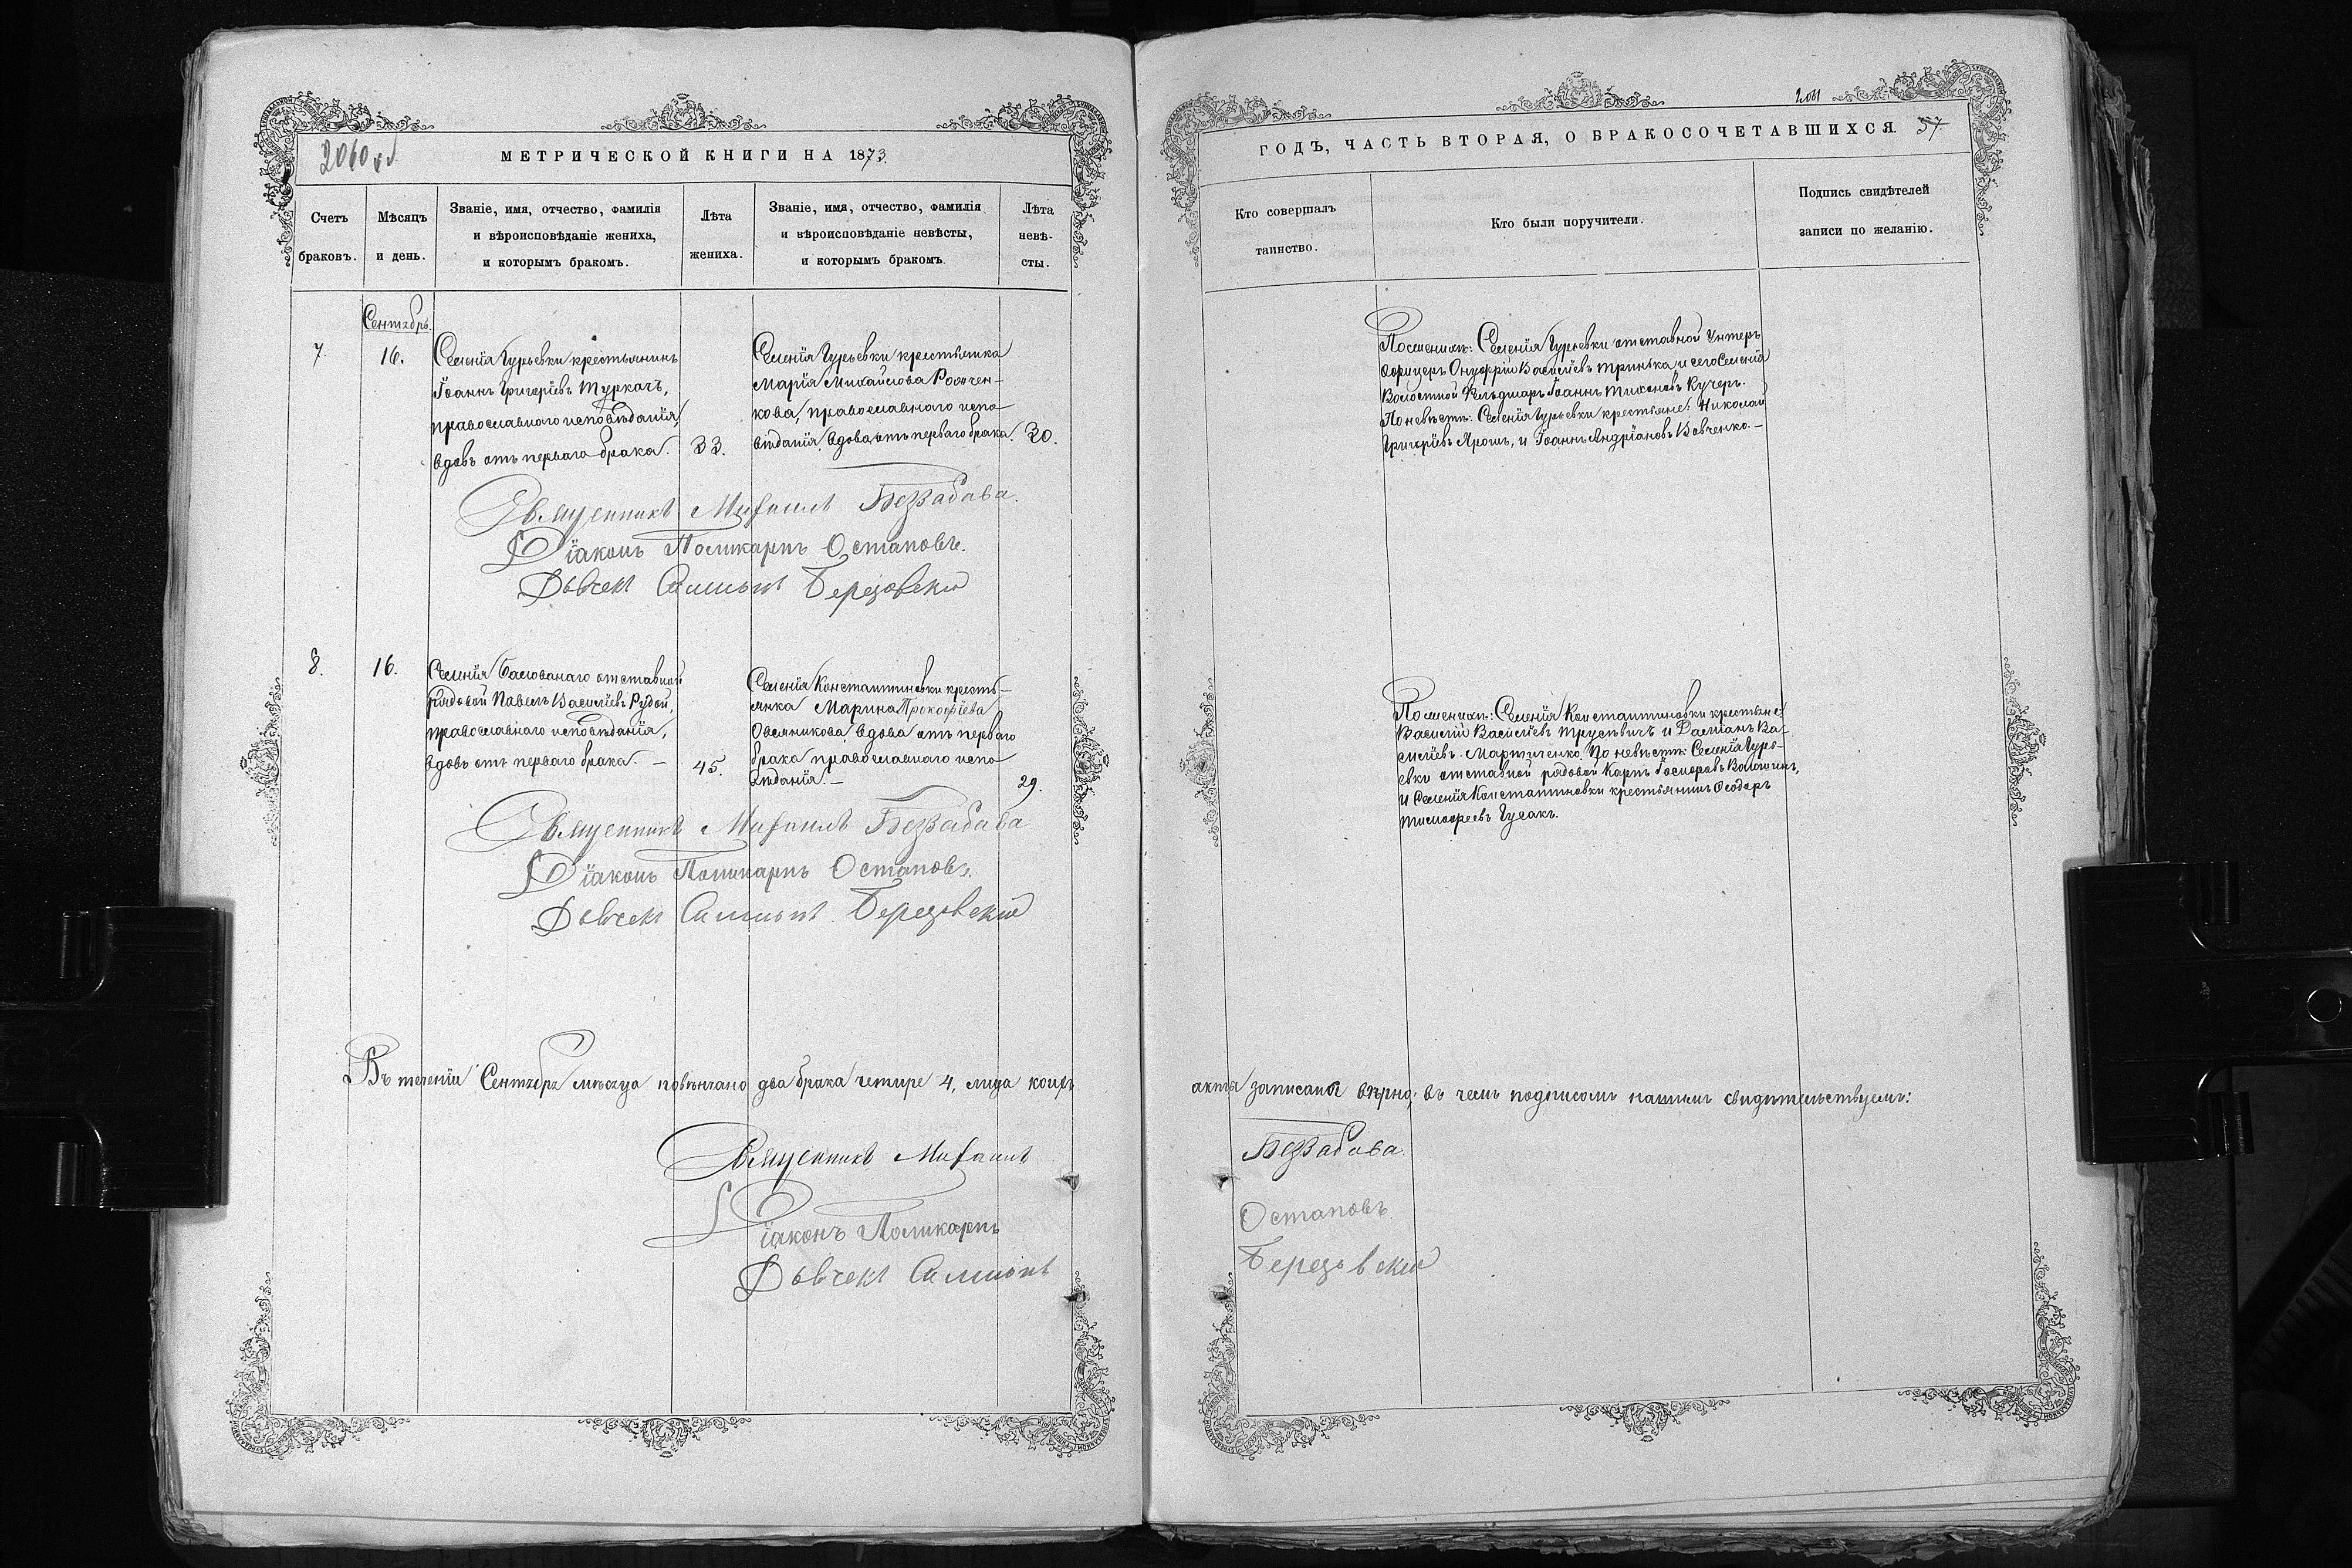 2060 об
МЕТРИЧЕСКОЙ КНИГИ НА 1873.
Счетъ браковъ.
Мѣсяцъ и день.
Званіе, имя, отчество, фамилія
и вѣроисповѣданіе жениха,
и которымъ бракомъ.
Лѣта жениха.
Званіе, имя, отчество, фамилія
и вѣроисповѣданіе невѣсты,
и которымъ бракомъ.
Лѣта невѣ-сты.
Сентябрь.
7.
16.
Селенія Гурьевки крестьянинъ
Іоаннъ Григоріевъ Туркачъ,
православнаго исповѣданія,
вдовъ отъ перваго брака.
33.
Селенія Гурьевки крестьянка
Марія Михайлова
кова, православнаго испо
вѣданія, вдова отъ перваго брака.
30.
Священникъ Михаилъ Беззабава.
Діаконъ Поликарпъ Остаповъ.
Дьячекъ Симеонъ Березовскій
8.
16.
Селенія Баловнаго отставной
рядовой Павелъ Васильевъ Рудой,
православнаго исповѣданія,
вдовъ отъ перваго брака. —
45.
Селенія Константиновки кресть-
янка Марина Прокофіева
Овсянникова, вдова отъ перваго
брака православнаго испо
вѣданія. —
29.
Священникъ Михаилъ Беззабава
Діаконъ Поликарпъ Остаповъ.
Дьячекъ Симеонъ Березовскій
Въ теченіи Сентября мѣсяца повѣнчано два брака четире 4, лица коихъ
Священникъ Михаилъ
Діаконъ Поликарпъ
Дьячекъ Симеонъ
2061
ГОДЪ, ЧАСТЬ ВТОРАЯ, О БРАКОСОЧЕТАВШИХСЯ. 57
Кто совершалъ
таинство.
Кто были поручители.
Подпись свидѣтелей
записи по желанію.
По женихѣ: Селенія Гурьевки отставной Унтеръ
Офицеръ Онуфрій Васильевъ Тринька, и сего Селенія
Волостной Фельдшаръ Іоаннъ Тихоновъ Кучеръ.
По невѣстѣ: Селенія Гурьевки крестьяне: Николай
Григоріевъ Ярошъ, и Іоаннъ Андріановъ Вовченко. —
По женихѣ: Селенія Константиновки крестьяне:
Василій Васильевъ Трусевичъ и Даміанъ Ва-
сильевъ Мартиненко. По невѣстѣ: Селенія Гурь-
евки отставной рядовой Карпъ
и Селенія Константиновки крестьянинъ Ѳеодоръ
Тимофеевъ Гусакъ.
акта записаны вѣрно, въ чемъ подписомъ нашимъ свидѣтельствуемъ:
Беззабава.
Остаповъ.
Березовскій